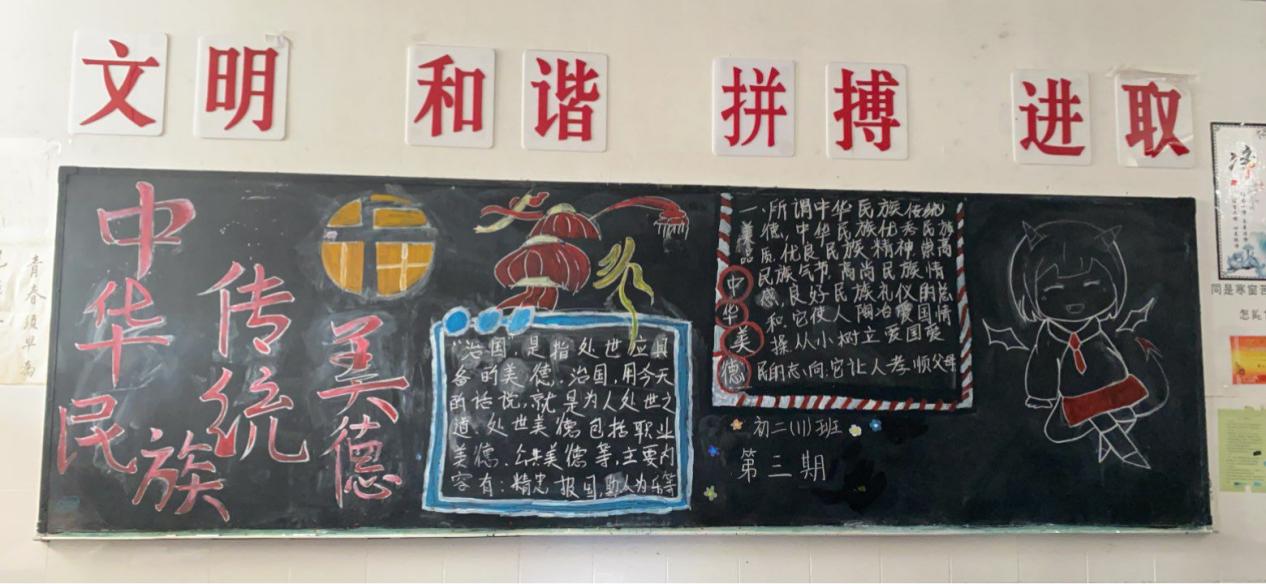 文明 和谐 拼搏 进取
中华民族
传统
美德
福
"治国"是指处世应具
备的美德,治国,用今天
的话说,就是为人处世之
道,处世美德包括职业
美德、公共美德等,主要内
容有:精忠报国,助人为乐等
一、所谓中华民族传统
美德,中华民族优秀民族
品质,优良民族精神,崇高
民族气节,高尚民族情
感,良好民族礼仪的总
和,它使人陶冶爱国情
操,从小树立爱国爱
民的志向,它让人孝顺父母
中
华
美
德
初二(11)班
第三期
青春
同是寒窗苦